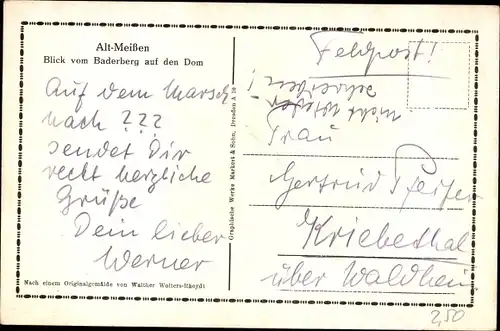 Alt-Meißen
Blick vom Baderberg auf den Dom
Auf dem Marsch
nach ???
sendet Dir
recht herzliche
Grüße
Dein lieber
Werner
Nach einem Originalgemälde von Walther Wolters-Rheydt
Graphische Werke Markert & Sohn, Dresden A 19
Feldpost!
nicht wieder
schreiben!
Frau
Gertrud Pfeifer
Kriebethal
über Waldheim
2,50